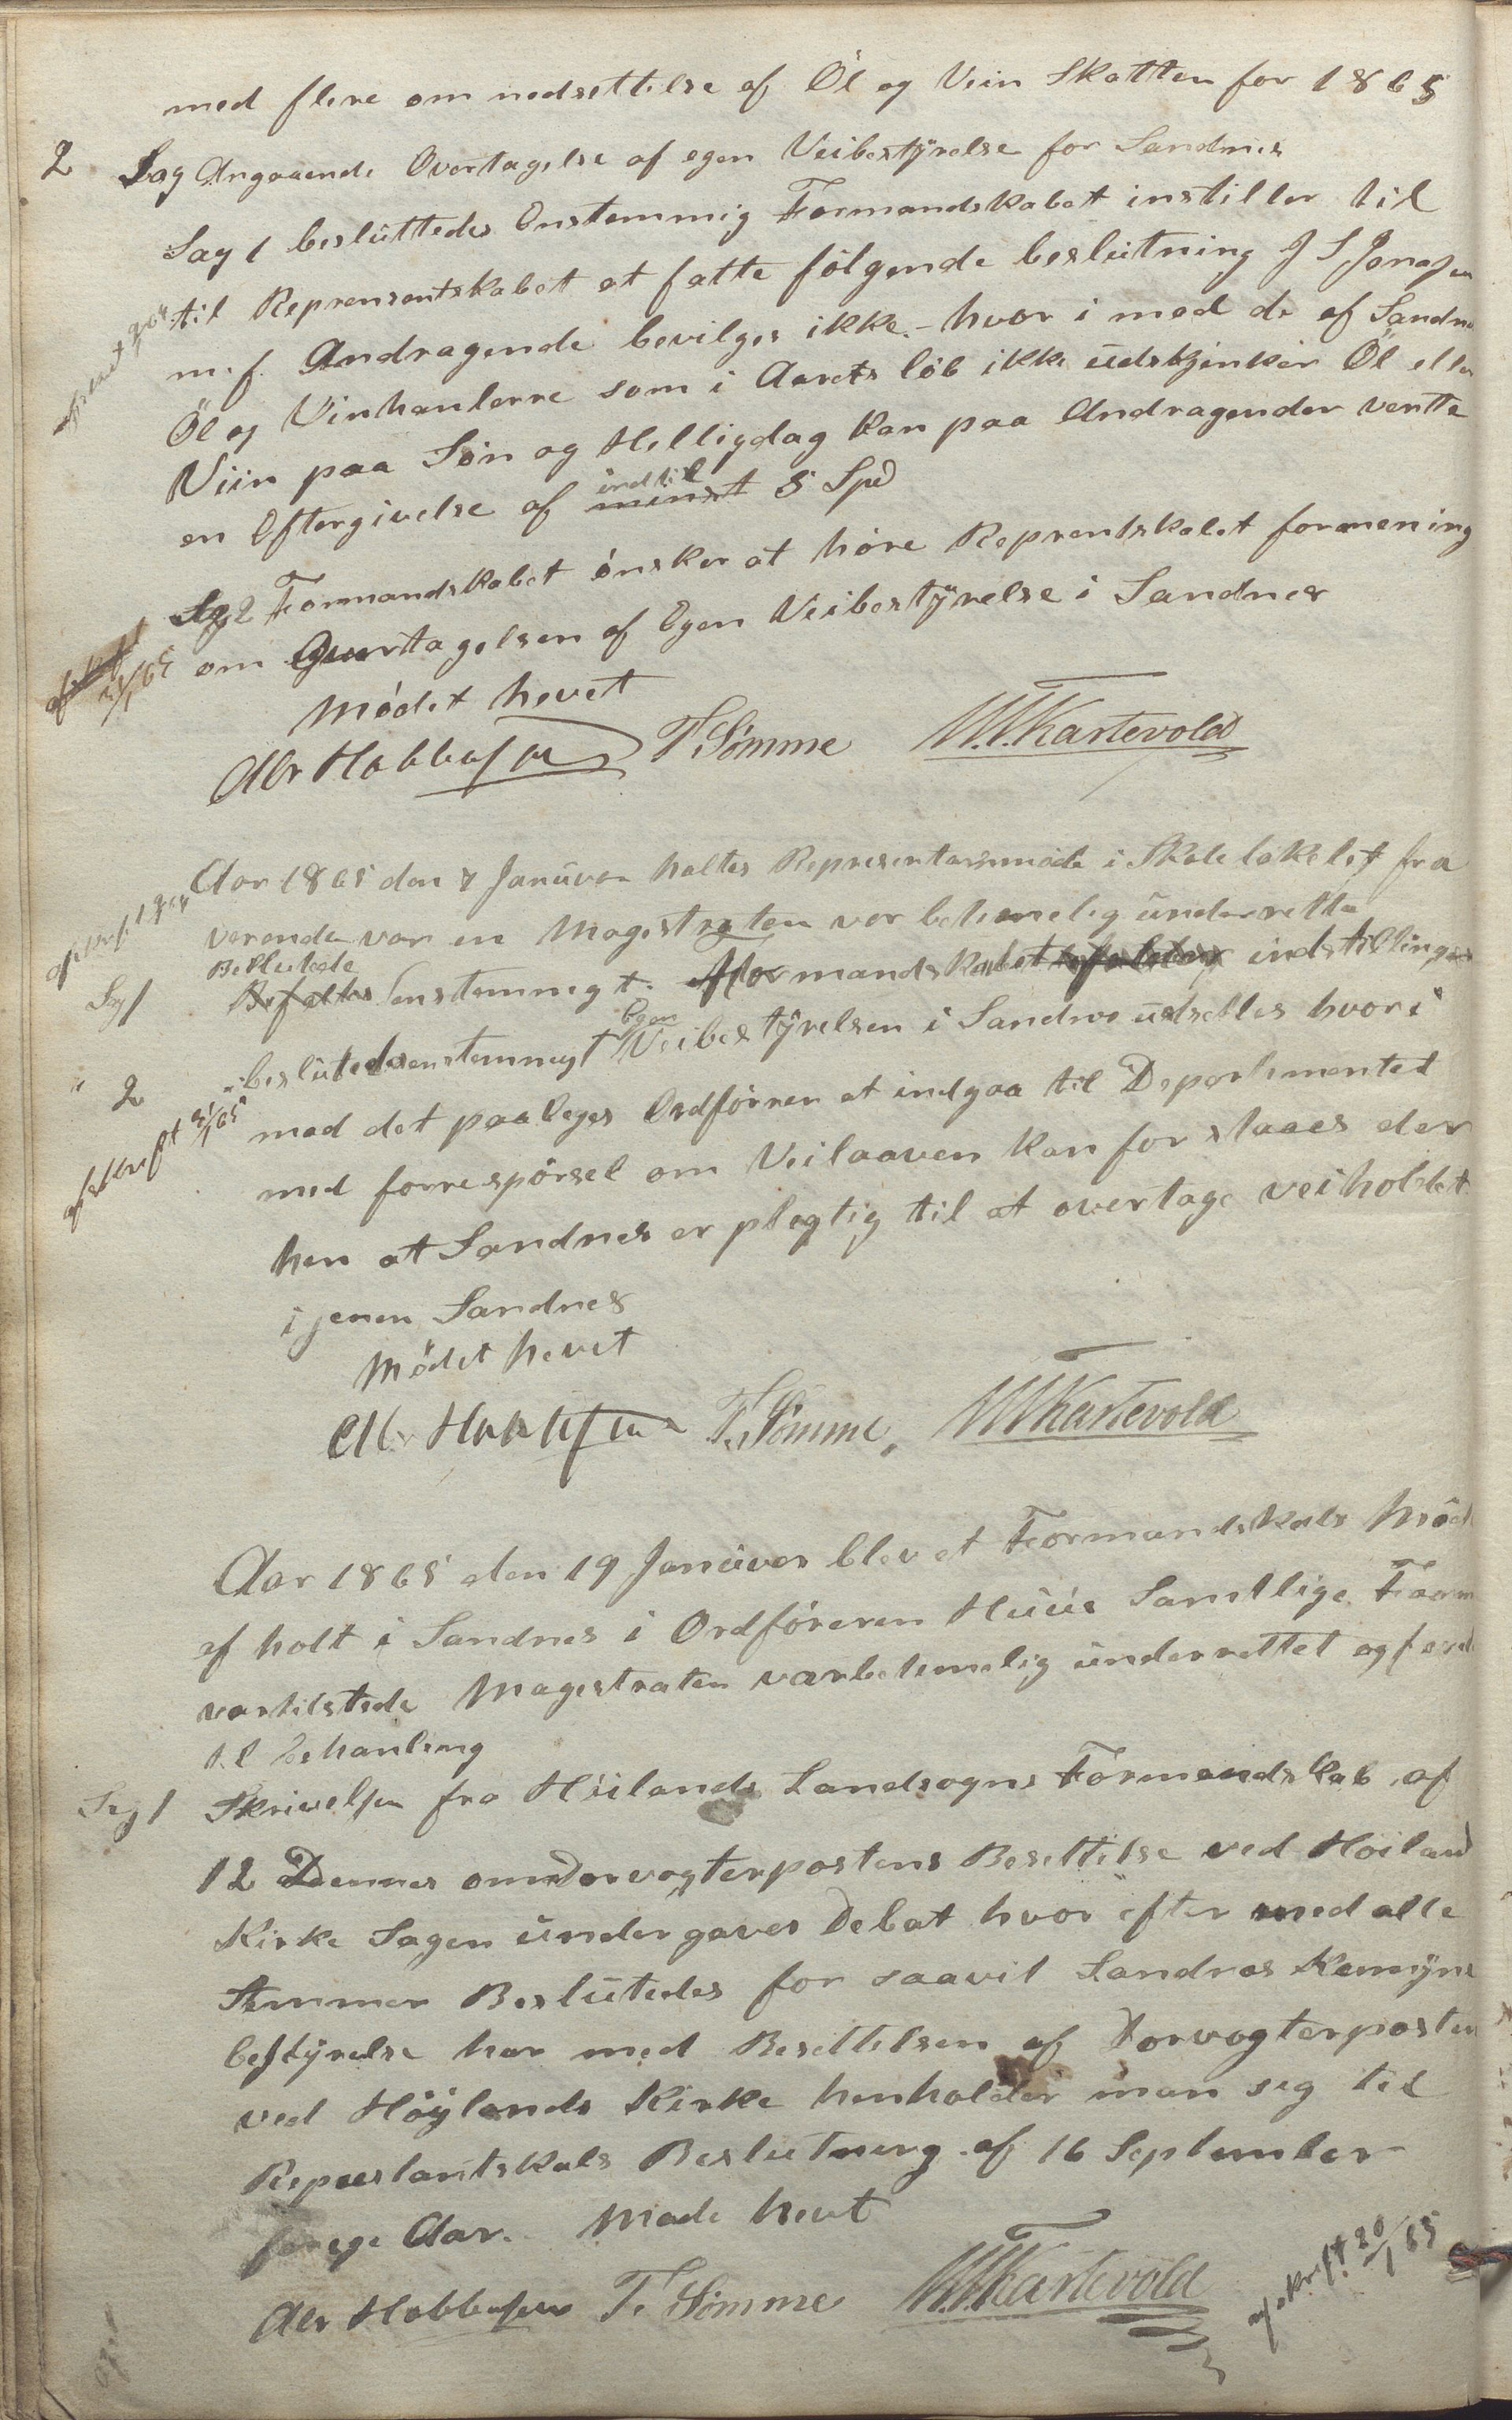 med flere om nedsettelse af Öl og Viin Skatten for 1865
2 Sag Angaaende Overtagelse af egen Veibestÿrelse for Sandnes
Sag 1 besluttedes Enstemmig Formandskabet instiller til
til Reprensentskabet at fatte følgende beslutning J S Jonasen
m.f. Andragende bevilges ikke. – hvor i mod de af Sandnes
Öl og Vinhanlerre som i Aarets löb ikke udskjenker Öl eller
Viin paa Søn og Helligdag kan paa Andragender vente
indtil
en Eftergivelse af minst 5 Spd
Sag 2 Formandskabet ønsker at høre Reprentskabet formening
om Overtagelsen af Egen Veibestÿrelse i Sandnes
Mødet hevet
T. Sömme
Aar 1865 den 7 Januar holtes Representansmøde i Skole lokelet fra
verende var en Magestraten var betimelig underrette
Besluttede
Sag 1 Enstemmigt. Formandskabet indstillinger
Egen
" 2 beslutedes enstemmigt Veibestÿrelsen i Sandnes udsettes hvor i
afskrift 21/1 65
med det paaleges Ordførrer at indgaa til Deportementet
med forrespörsel om Veilaaven kan for staaes der
hen at Sandnes er plegtig til at overtage veiholdet
i jenem Sandnes
Mödet hevet
T. Sömme,
Aar 1865 den 19 Januar blev et Formandskabs Möde
af holt i Sandnes i Ordföreren Huus Samtlige Form
var tilstede Magestraten var betimelig underrettet og
til behanling
Sag 1 Skrivelsen fra Höilands Landsogns Formandskab af
12 Dennes om Dorvogterpostens Besettelse ved Höiland
Kirke Sagen undergaves Debat hvor efter med alle
Stemmer Beslutedes for saavit Sandnes Komÿne
bestÿrelse har med Besettelsen af Dorvogterposten
ved Höÿlands Kirke henholder man seg til
Repræsentantskabs Beslutning af 16 September
forige Aar. Møde hevet
T. Sömme
afskrift 20/1 65